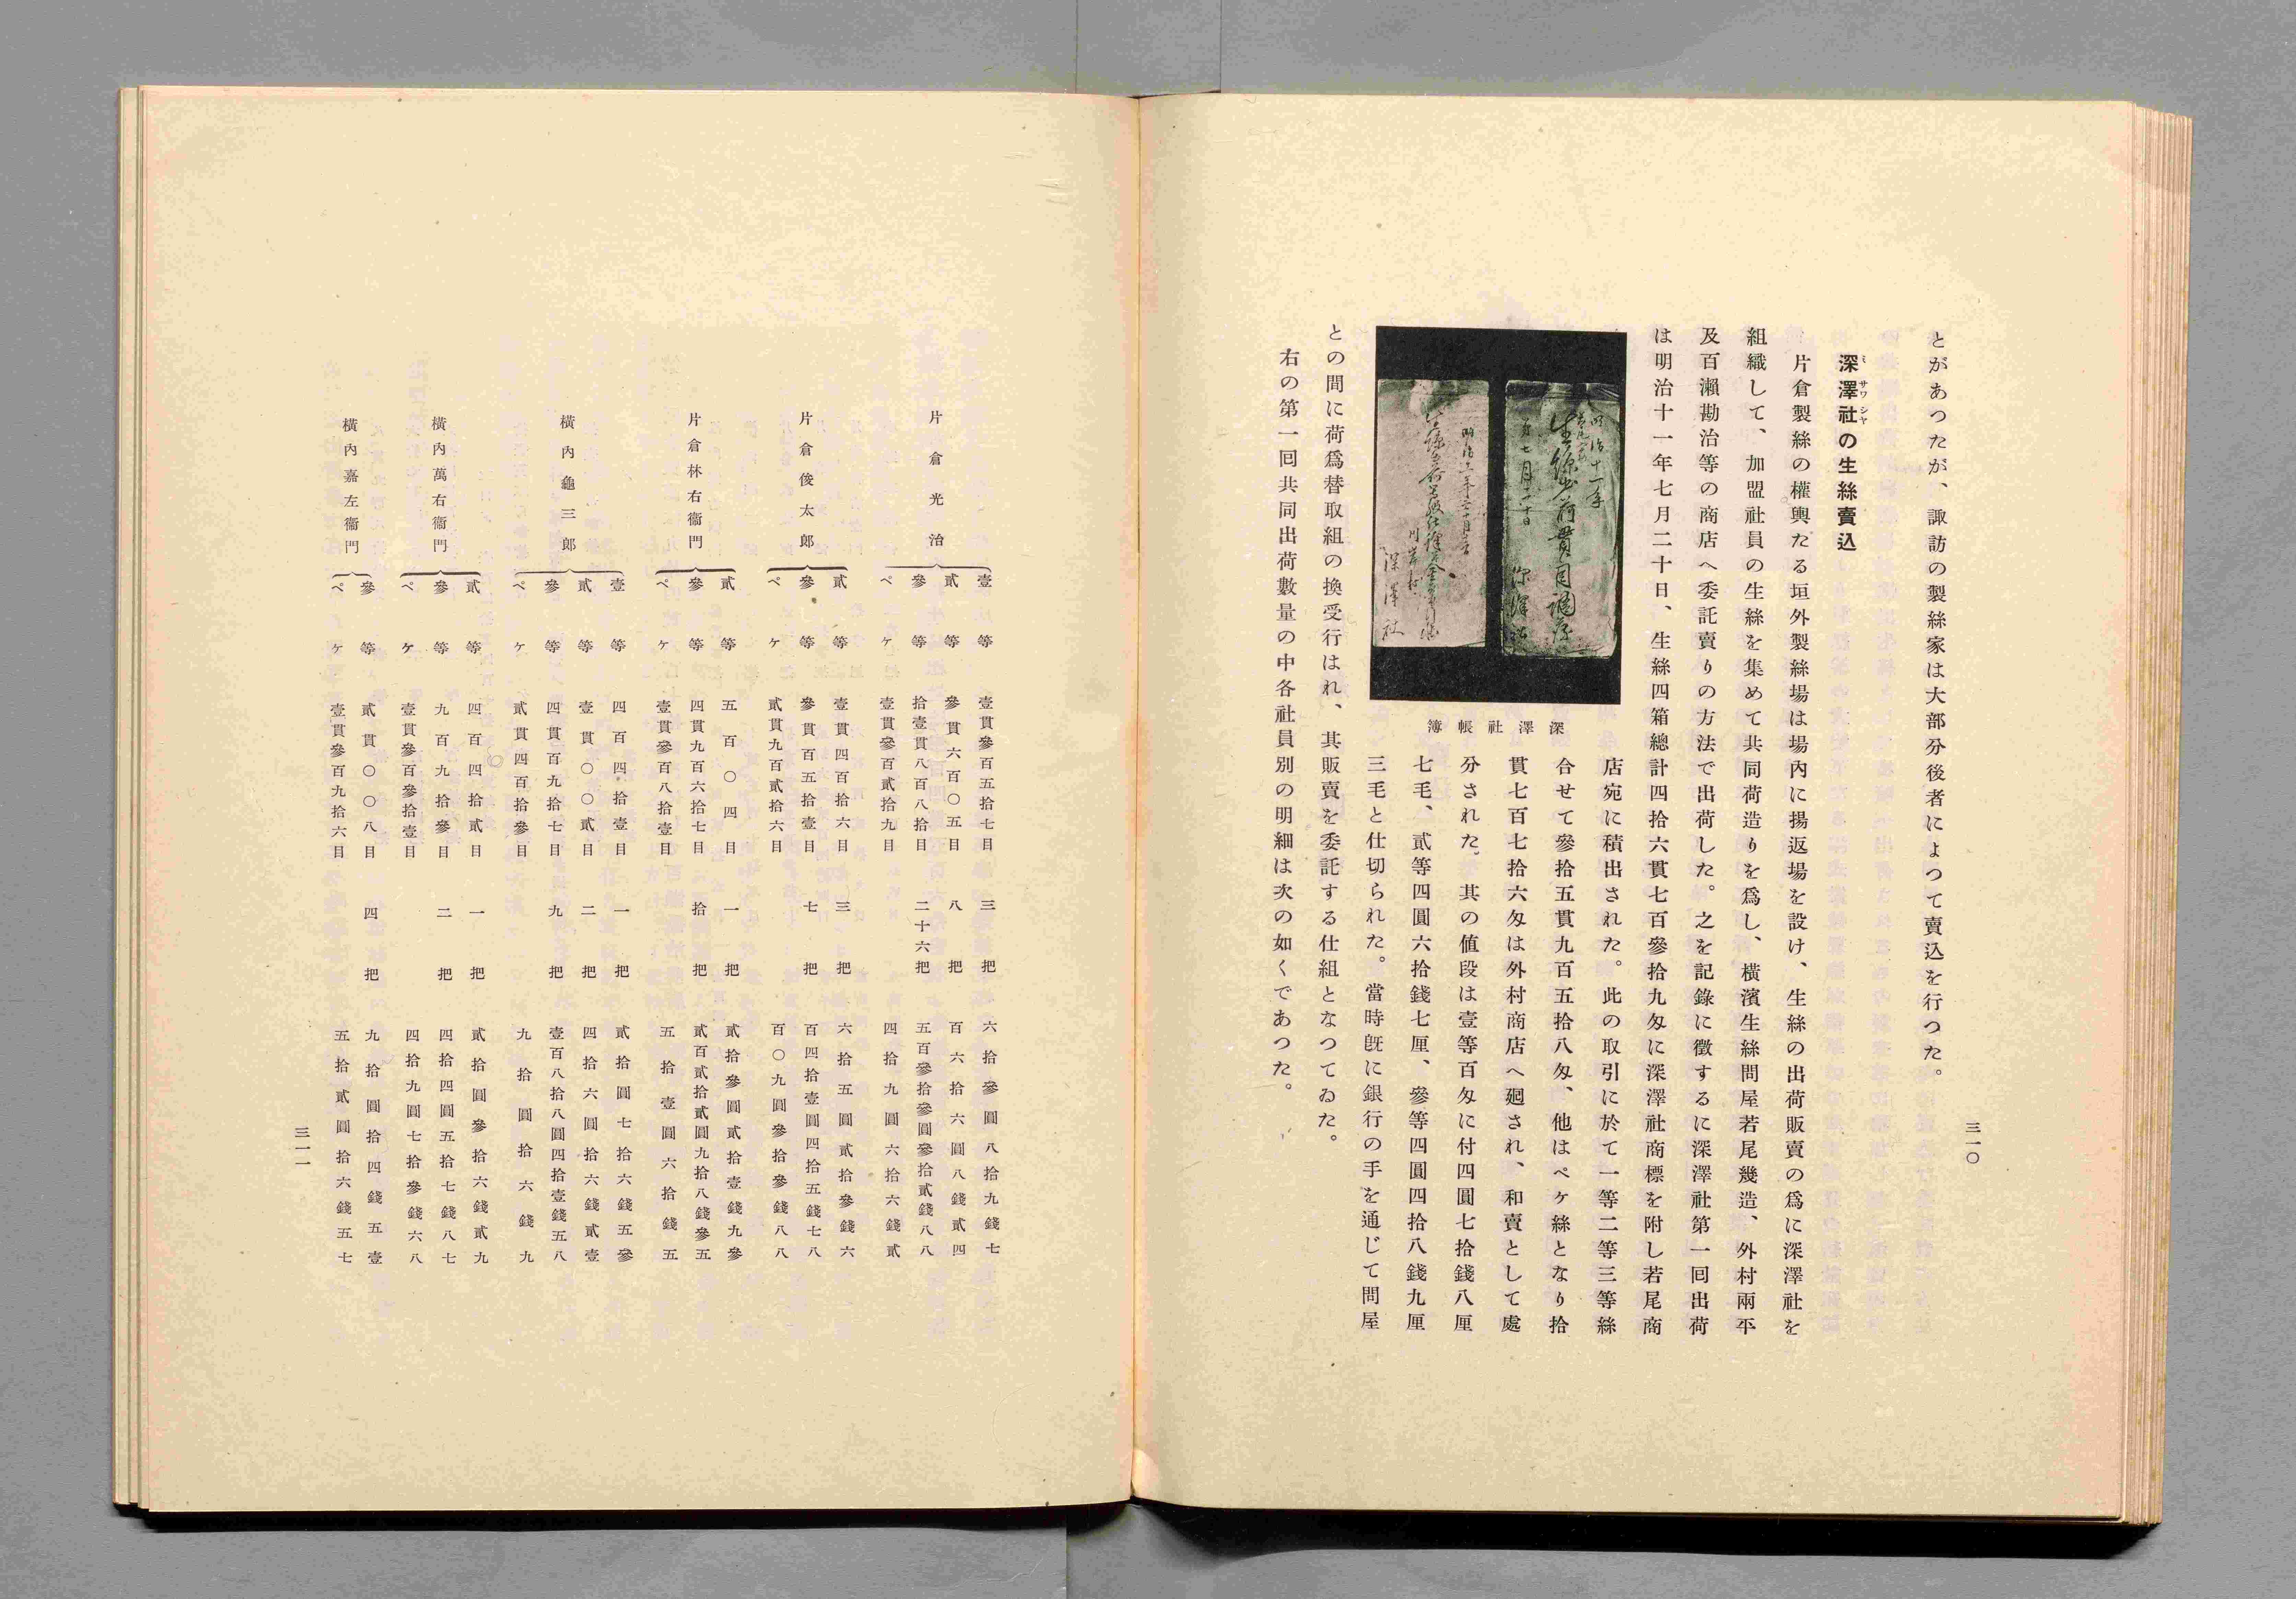 とがあつたが、諏訪の製絲家は大部分後者によつて賣込を行つた。
深澤社の生絲賣込
ミサワシヤ
片倉製絲の權輿たる垣外製絲場は場內に揚返場を設け、生絲の出荷販賣の爲に深澤社を
組織して、加盟社員の生絲を集めて共同荷造りを爲し、橫濱生絲問屋若尾幾造、外村兩平
及百瀨勘治等の商店へ委託賣りの方法で出荷した。之を記錄に徵するに深澤社第一囘出荷
は明治十一年七月二十日、生絲四箱總計四拾六貫七百參拾九匁に深澤社商標を附し若尾商
店宛に積出された。此の取引に於て一等二等三等絲
合せて參拾五貫九百五拾八匁、他はペケ絲となり拾
貫七百七拾六匁は外村商店へ廻され、和賣として處
分された。其の値段は壹等百匁に付四圓七拾錢八厘
七毛、貳等四圓六拾錢七厘、參等四圓四拾八錢九厘
三毛と仕切られた。當時旣に銀行の手を通じて問屋
深澤社帳簿
明治十一年
深澤社
との間に荷爲替取組の換受行はれ、其販賣を委託する仕組となつてゐた。
右の第一囘共同出荷數量の中各社員別の明細は次の如くであつた。
三一〇
片倉光治
壹等 壹貫參百五拾七目 三把 六拾參圓八拾九錢七
貳等 參貫六百〇五目 八把 百六拾六圓八錢貳四
參等 拾壹貫八百八拾目 二十六把 五百參拾參圓參拾貳錢八八
ペケ 壹貫參百貳拾九目 四拾九圓六拾六錢貳
片倉俊太郎
貳等 壹貫四百拾六目 三把 六拾五圓貳拾參錢六
參等 參貫百五拾壹目 七把 百四拾壹圓四拾五錢七八
ペケ 貳貫九百貳拾六目 百〇九圓參拾參錢八八
片倉林右衞門
貳等 五百〇四目 一把 貳拾參圓貳拾壹錢九參
參等 四貫九百六拾七目 拾把 貳百貳拾貳圓九拾八錢參五
ペケ 壹貫參百八拾壹目 五拾壹圓六拾錢五
橫內龜三郞
壹等 四百四拾壹目 一把 貳拾圓七拾六錢五參
貳等 壹貫〇〇貳目 二把 四拾六圓拾六錢貳壹
參等 四貫百九拾七目 九把 壹百八拾八圓四拾壹錢五八
ペケ 貳貫四百拾參目 九拾圓拾六錢九
橫內萬右衞門
貳等 四百四拾貳目 一把 貳拾圓參拾六錢貳九
參等 九百九拾參目 二把 四拾四圓五拾七錢八七
ペケ 壹貫參百參拾壹目 四拾九圓七拾參錢六八
橫內嘉左衞門
參等 貳貫〇〇八目 四把 九拾圓拾四錢五壹
ペケ 壹貫參百九拾六目 五拾貳圓拾六錢五七
三一一